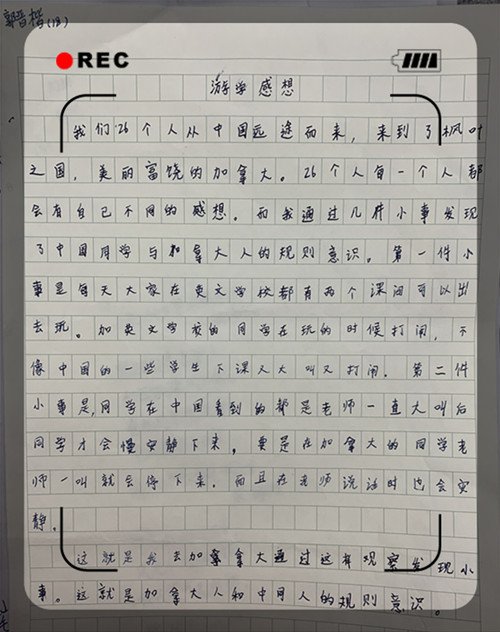 郭晋楷(18)
REC
游学感想
我们26个人从中国远途而来，来到了枫叶
之国，美丽富饶的加拿大。26个人每一个人都
会有自己不同的感想。而我通过几件小事发现
了中国同学与加拿大人的规则意识。第一件小
事是每天大家在英文学校都有两个课间可以出
去玩。加英文学校的同学在玩的时候打闹，不
像中国的一些学生下课又大叫又打闹。第二件
小事是，同学在中国看到的都是老师一直大叫后
同学才会慢安静下来，要是在加拿大的同学老
师一叫就会停下来。而且在老师说话时也会安
静。
这就是我去加拿拿大通过这有观察发现小
事。这就是加拿大人和中国人的规则意识。